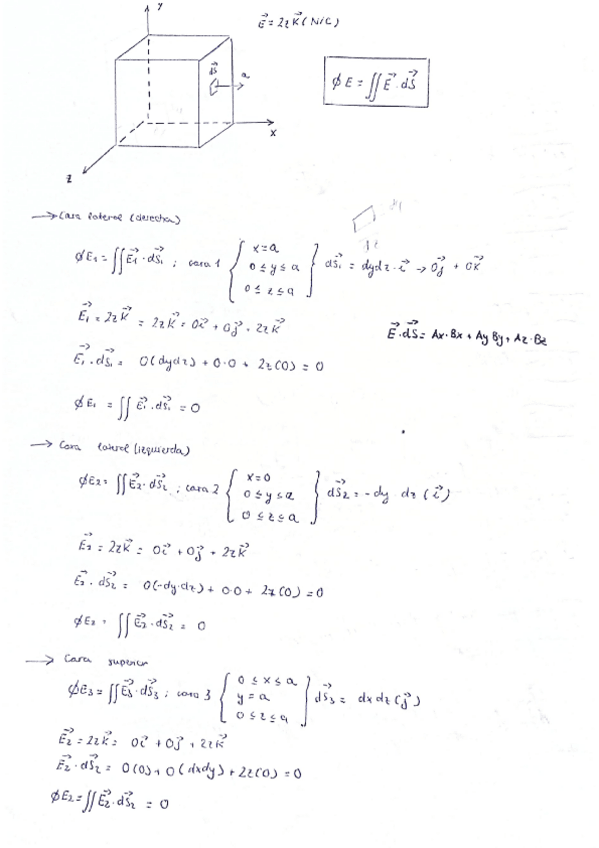 y
E⃗ = 2z k⃗ (N/C)
dS⃗
a
x
z
ϕE = ∬ E⃗ · dS⃗
→ Cara lateral (derecha)
ϕE₁ = ∬ E⃗₁ · dS⃗₁ ; cara 1 { x=a 0 ≤ y ≤ a 0 ≤ z ≤ a } dS⃗₁ = dydz · i⃗ → 0j⃗ + 0k⃗
E⃗₁ = 2z k⃗ = 2z k⃗ = 0i⃗ + 0j⃗ + 2z k⃗
E⃗·dS⃗ = Ax·Bx + Ay By + Az·Bz
E⃗₁ · dS⃗₁ = 0(dydz) + 0·0 + 2z(0) = 0
ϕE₁ = ∬ E⃗₁ · dS⃗₁ = 0
→ Cara lateral (izquierda)
ϕE₂ = ∬ E⃗₂ · dS⃗₂ ; cara 2 { x=0 0 ≤ y ≤ a 0 ≤ z ≤ a } dS⃗₂ = -dy dz (i⃗)
E⃗₂ = 2z k⃗ = 0i⃗ + 0j⃗ + 2z k⃗
E⃗₂ · dS⃗₂ = 0(-dy·dz) + 0·0 + 2z(0) = 0
ϕE₂ = ∬ E⃗₂ · dS⃗₂ = 0
→ Cara superior
ϕE₃ = ∬ E⃗₃ · dS⃗₃ ; cara 3 { 0 ≤ x ≤ a y = a 0 ≤ z ≤ a } dS⃗₃ = dxdz (j⃗)
E⃗₂ = 2z k⃗ = 0i⃗ + 0j⃗ + 2z k⃗
E⃗₂ · dS⃗₂ = 0(0) + 0(dxdy) + 2z(0) = 0
ϕE₂ = ∬ E⃗₂ · dS⃗₂ = 0